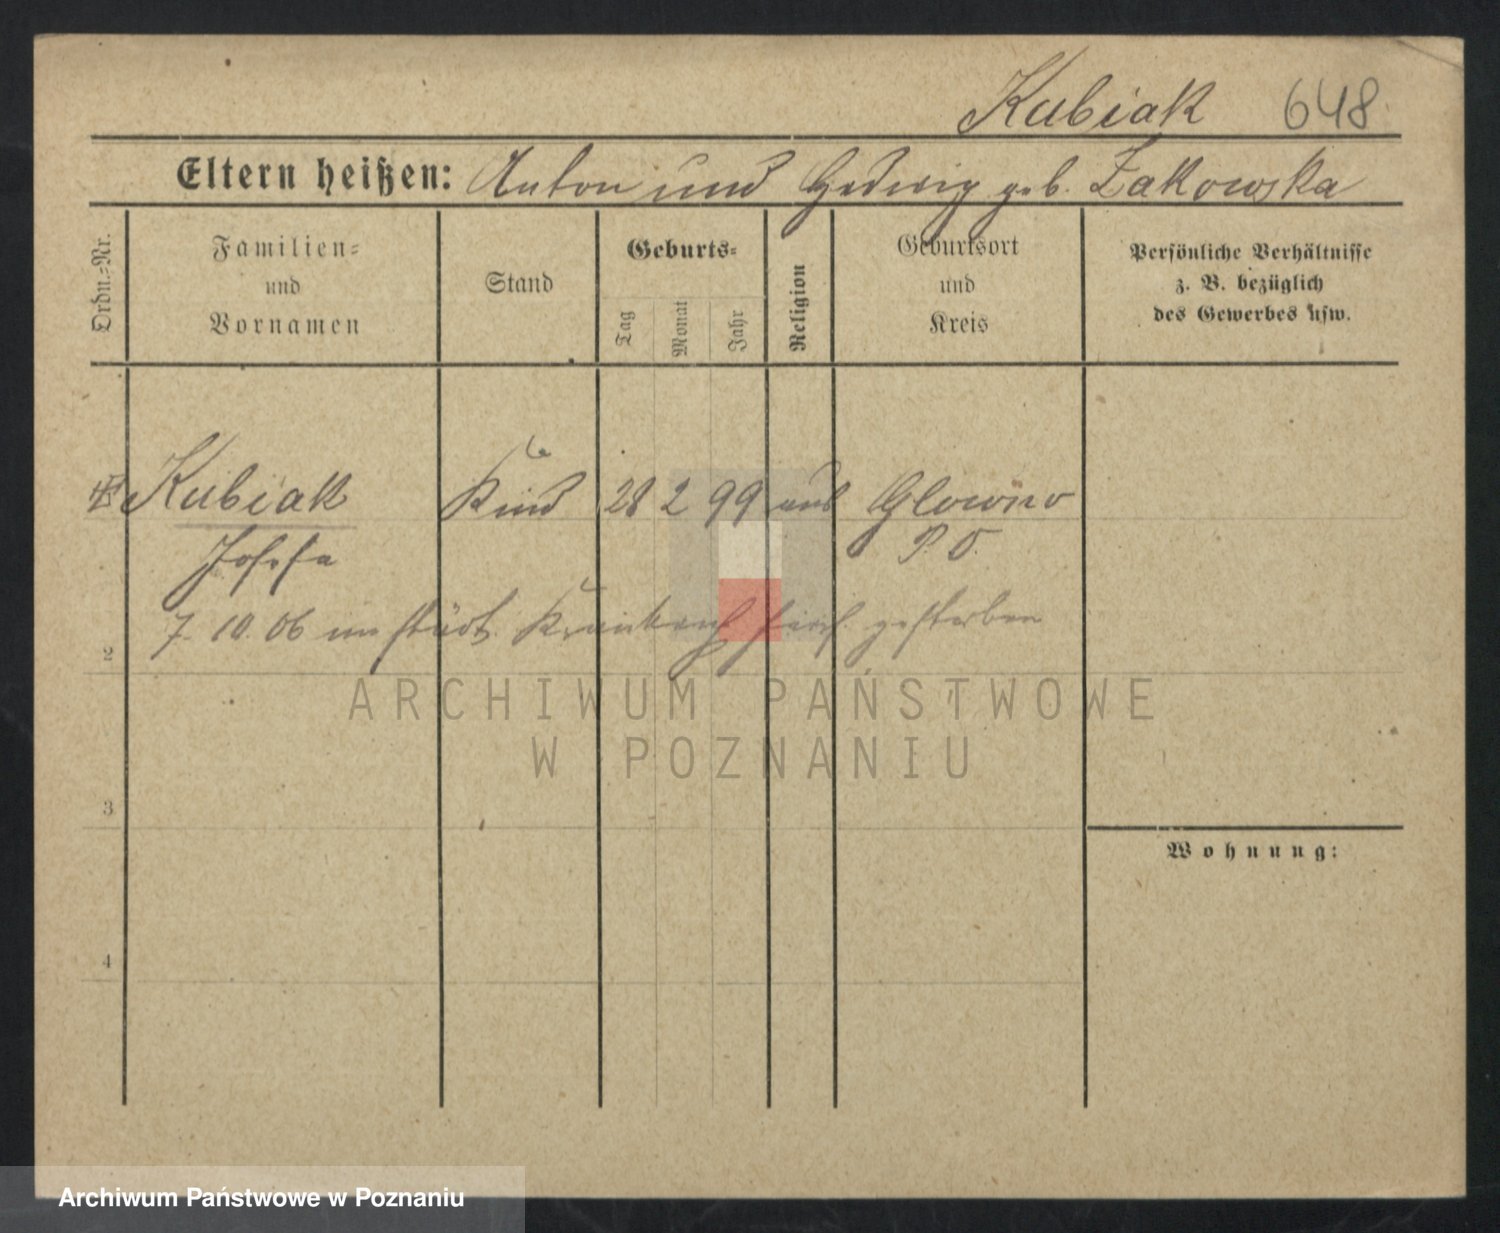 Kubiak 648
Eltern heißen: Anton und Hedwig geb. Żakowska
Ordn.-Nr.
Familien-
und
Vornamen
Stand
Geburts-
Tag
Monat
Jahr
Religion
Geburtsort
und
Kreis
Persönliche Verhältnisse
z. B. bezüglich
des Gewerbes usw.
Kubiak Kind 28 2 99 Glowno
Josefa P O.
7. 10. 06 im städt. gestorben
2
3
4
Wohnung:
ARCHIWUM PAŃSTWOWE
W POZNANIU
Archiwum Państwowe w Poznaniu